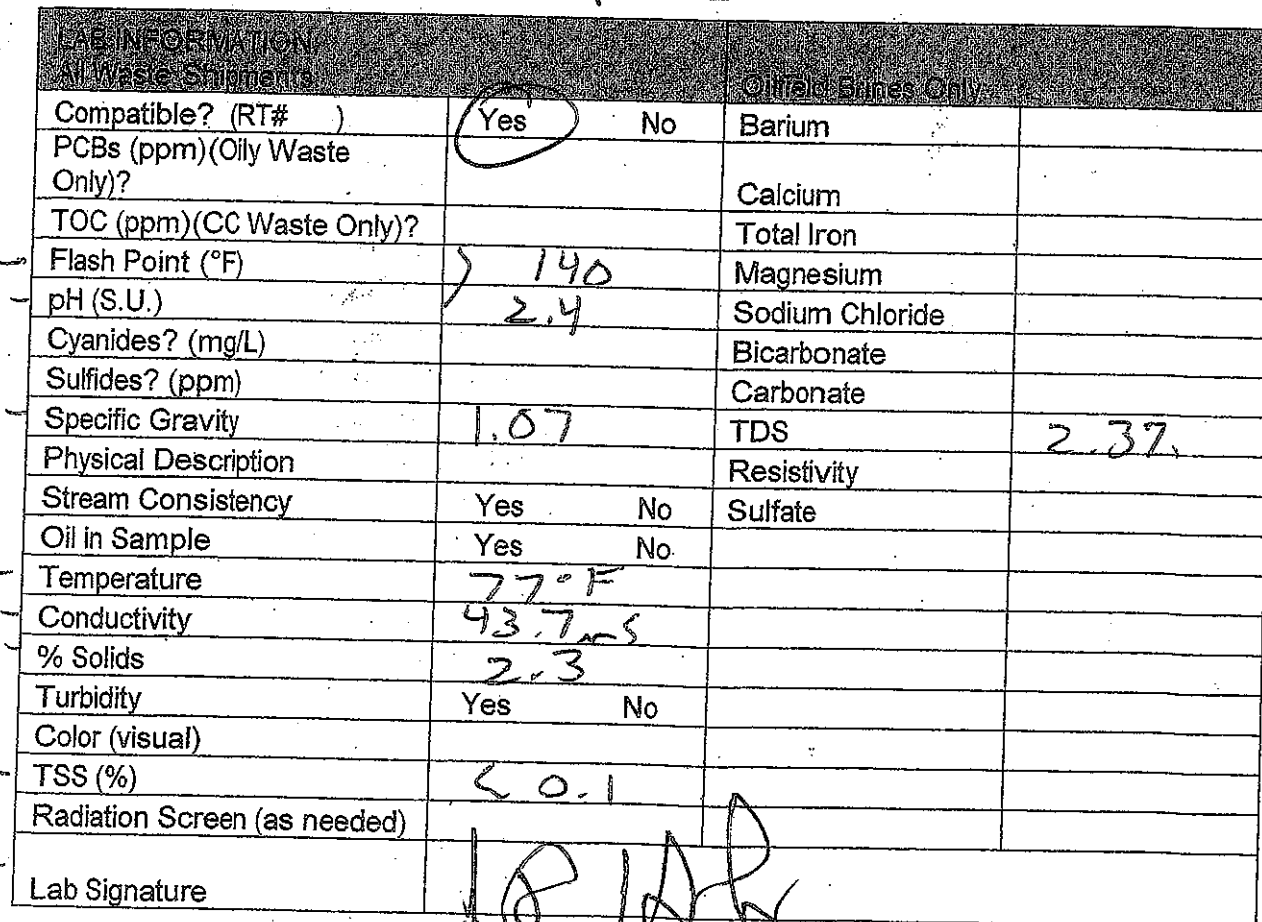 LAB INFORMATION
All Waste Shipments Oilfield Brines Only
Compatible? (RT# ) Yes No Barium
PCBs (ppm)(Oily Waste
Only)? Calcium
TOC (ppm)(CC Waste Only)? Total Iron
Flash Point (°F) > 140 Magnesium
pH (S.U.) 2.4 Sodium Chloride
Cyanides? (mg/L) Bicarbonate
Sulfides? (ppm) Carbonate
Specific Gravity 1.07 TDS 2.3%
Physical Description Resistivity
Stream Consistency Yes No Sulfate
Oil in Sample Yes No
Temperature 77°F
Conductivity 43.7 mS
% Solids 2.3
Turbidity Yes No
Color (visual)
TSS (%) < 0.1
Radiation Screen (as needed)
Lab Signature